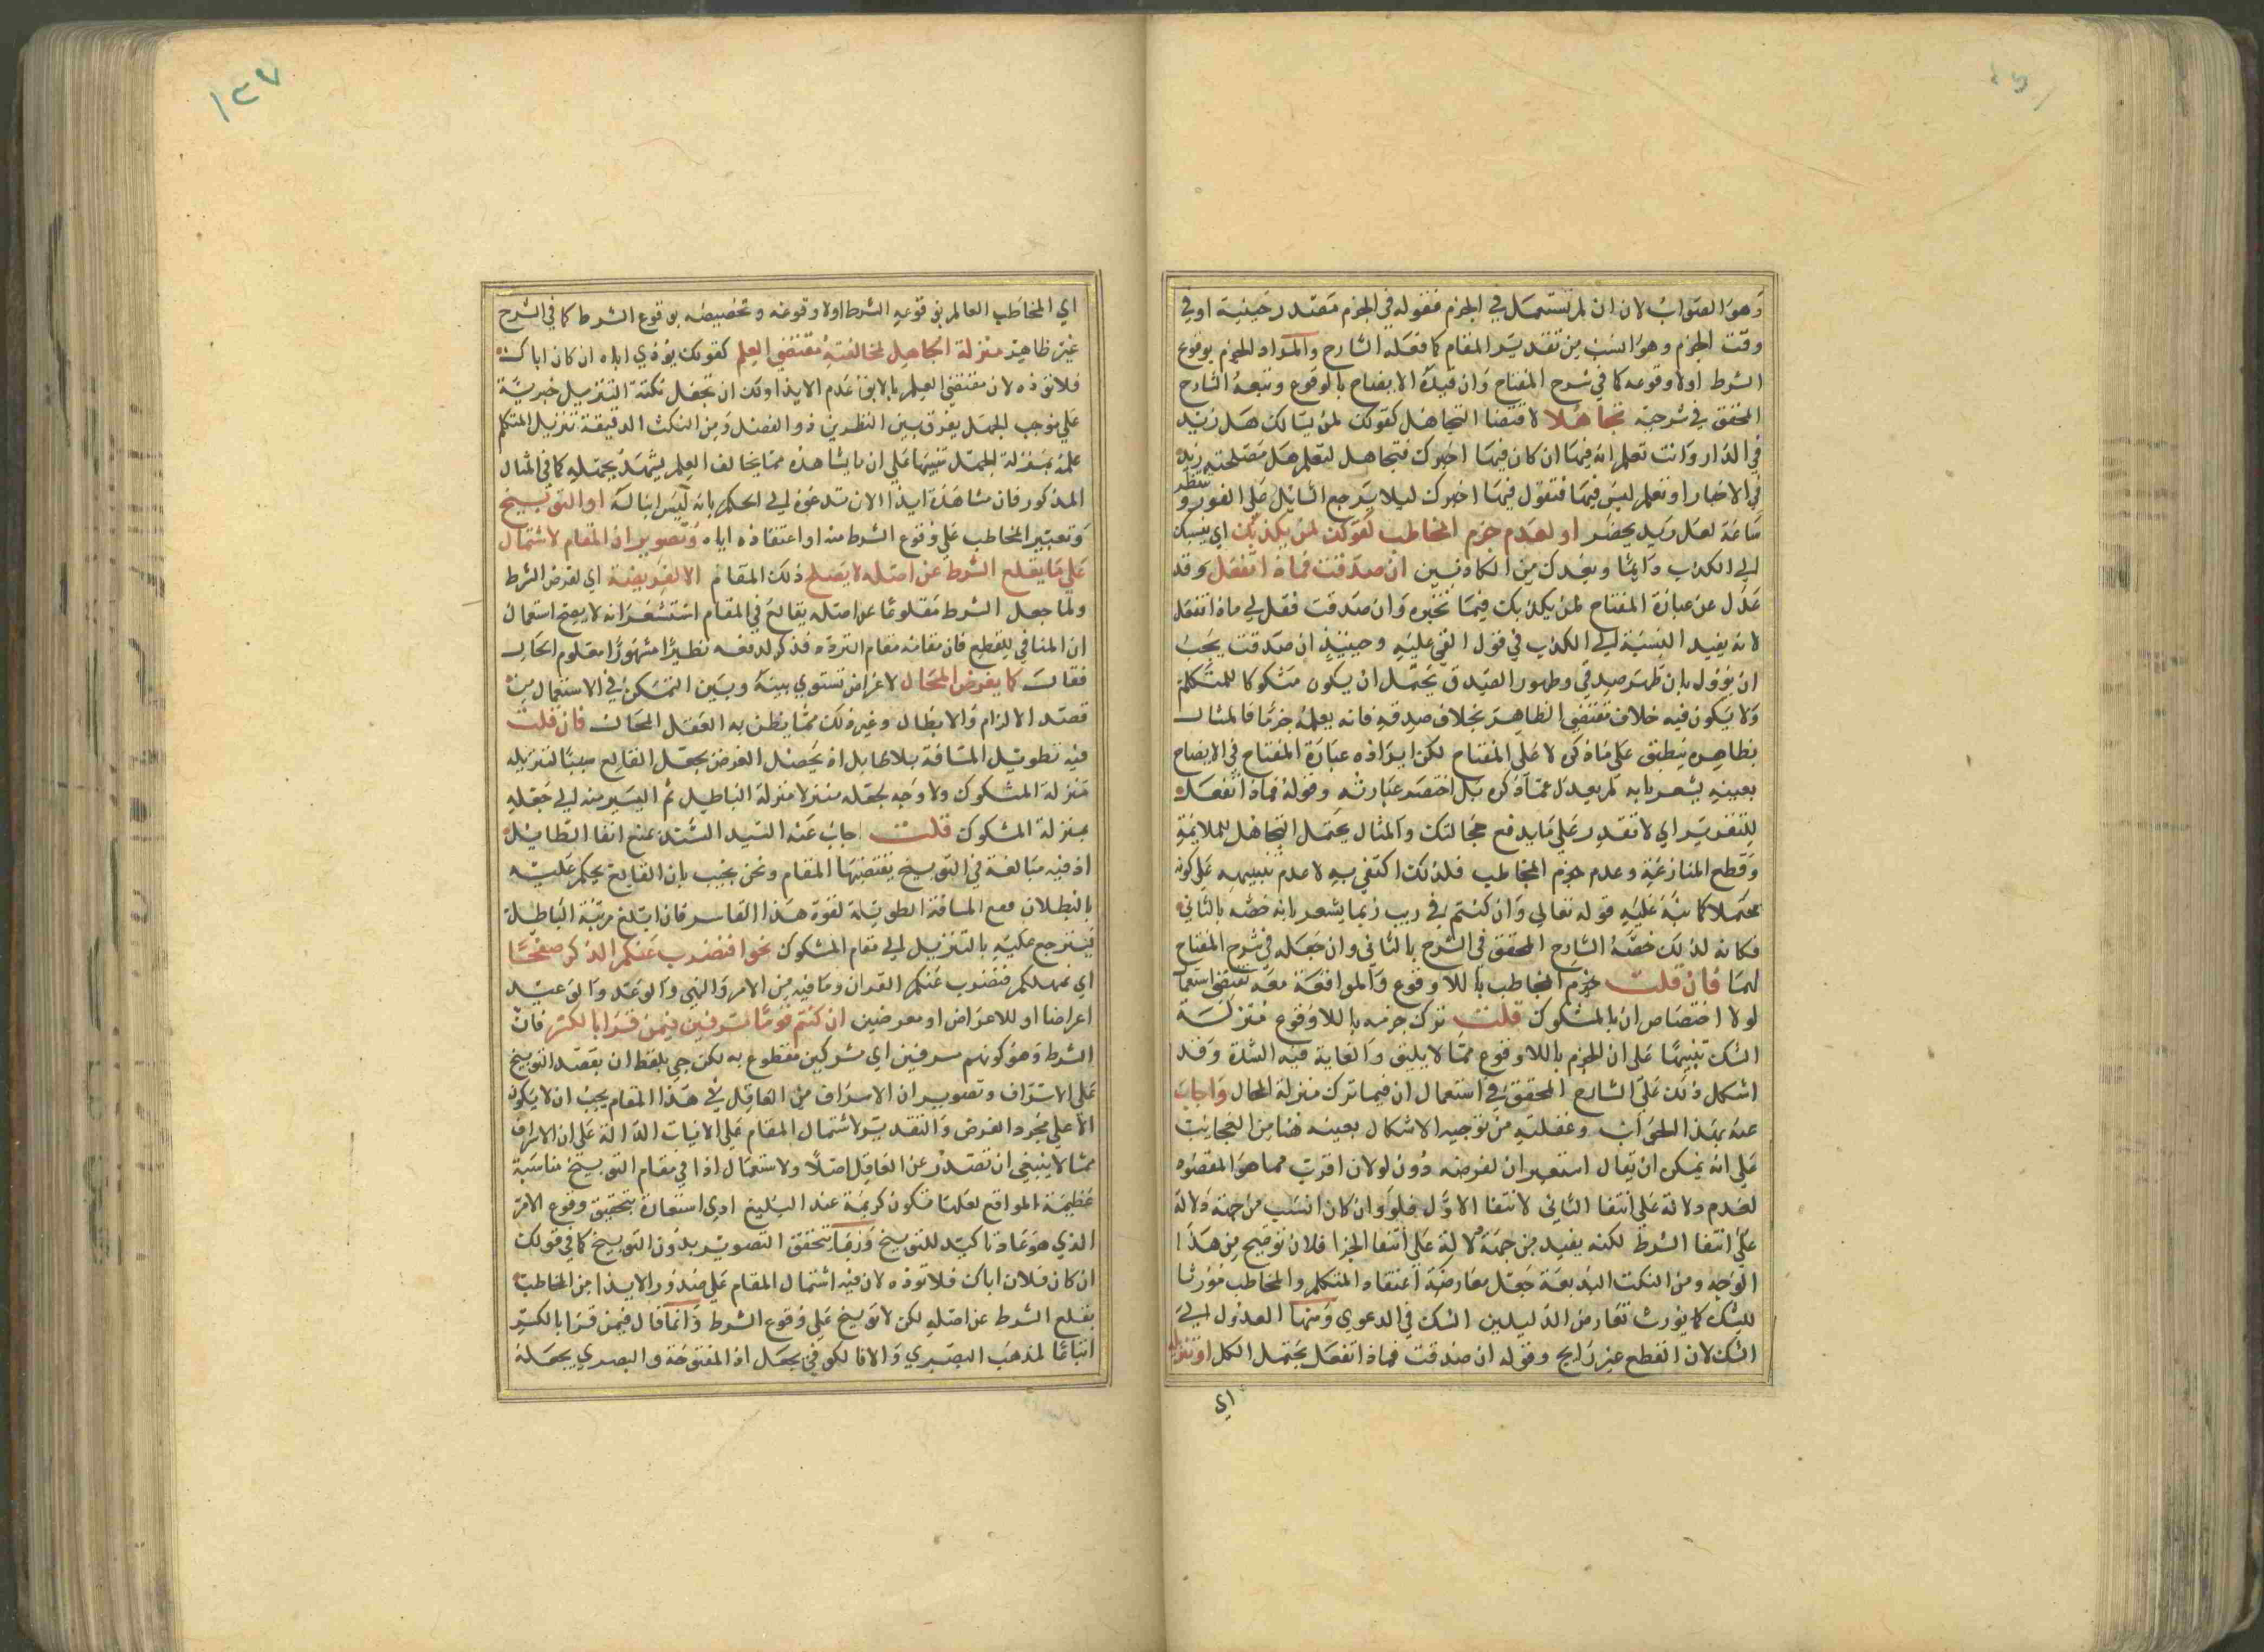 وهو الصواب لان ان لم تستعمل في الجزم فقوله في الجزم مصدر حينية او في
وقت الجزم وهو انسب من تقدير المقام كما فعله الشارح والمراد الجزم بوقوع
الشرط اولا وقوعه كما في شرح المفتاح وان قيده الايضاح بالوقوع وتبعه الشارح
المحقق في شرحه تجاهلا لاقتضا التجاهل كقولك لمن يسالك هل زيد
في الدار وانت تعلم انه فيها ان كان فيها اخبرك فتجاهل لتعلم هل مصلحة زيد
في الاخبار او تعلم ليس فيها فتقول فيها اخبرك ليلا يرجع السايل على الفور و ينتظر
ساعة لعل زيد يحضر او لعدم جزم المخاطب كقولك لمن يكذبك اي ينسبك
الى الكذب دايما ويعدك من الكاذبين ان صدقت فماذا تفعل وقد
عدل عن عبارة المفتاح لمن يكذبك فيما تخبره وان صدقت فقل لي ماذا تفعل
لانه يفيد النسبة الى الكذب في قول القي عليه وحينئذ ان صدقت يجب
ان يؤول بان ظهر صدقي وظهور الصدق يحتمل ان يكون مشكوكا للمتكلم
ولا يكون فيه خلاف مقتضى الظاهر بخلاف صدقه فانه يعلم جزما فالمثال
بظاهره ينطبق على ماذكره لا على المفتاح لكن ايراده عبارة المفتاح في الايضاح
بعينه يشعر بانه لم يعدل عما ذكره بل اختصر عبارته وقوله فماذا تفعل
للتقرير اي لا تقدر على ما يدفع خجالتك والمثال يحتمل التجاهل لملايمة
وقطع المنازعة وعدم جزم المخاطب فلذلك اكتفي به لا عدم تنبيهه على كونه
محتملا كما نبه عليه قوله تعالى وان كنتم في ريب ربما يشعر بانه خصه بالثاني
فكانه لذلك خصه الشارح المحقق في الشرح بالثاني وان جعله في شرح المفتاح
لهما فان قلت جزم المخاطب باللاوقوع والموافقة معه تقتضي استعمال
لولا اختصاص ان بالمشكوك قلت ترك جزمه باللاوقوع منزلة
الشك تنبيها على ان الجزم باللاوقوع مما لا يليق والغاية فيه الشك وقد
اشكل ذلك على الشارح المحقق في استعمال ان فيما ترك منزلة المحال واجاب
عنه بهذا الجواب وغفلته من توجيه الاشكال بعينه هنا من العجائب
على انه يمكن ان يقال استعير ان لفرضه دون لو لان اقرب مما هو المقصود
لعدم دلالة على انتفا الثاني لانتفا الاول فلو وان كان انسب من جهة دلالة
على انتفا الشرط لكنه يفيد من جهة دلالة على انتفا الجزا فلان توضيح من هذا
الوجه ومن النكت البديعة جعل معارضة اعتقاد المتكلم والمخاطب مورثا
للشك كما يورث تعارض الدليلين الشك في الدعوي ومنها العدول الى
الشك لان القطع غير رايج وقوله ان صدقت فماذا تفعل يحتمل الكل او تنزيله
اي
١٣٧
اي المخاطب العالم بوقوعه الشرط اولا وقوعه وتخصيصه بوقوع الشرط كما في الشرح
غير ظاهر منزلة الجاهل لمخالفته مقتضى العلم كقولك يؤذي اباه ان كان اباك
فلا تؤذه لان مقتضى العلم بالابوة عدم الايذا ولك ان تجعل نكتة التنزيل خيرية
على موجب الجهل يفرق بين النظرين ذو الفضل ومن النكت الدقيقة تنزيل المتكلم
علمه بمنزلة الجهل تنبيها على ان ما يشاهده مما يخالف العلم يشهد بجهله كما في المثال
المذكور فان مشاهدة ايذا الابن تدعوه الى الحكم بانه ليس ابنا له او التوبيخ
وتعيير المخاطب على وقوع الشرط منه او اعتقاده اياه وتصوير ان المقام لاشتماله
على ما يقلع الشرط عن اصله لا يصلح ذلك المقام الا لفرضه اي لفرض الشرط
ولما جعل الشرط مقلوعا عن اصله بقالع في المقام استشعر انه لا يصح استعمال
ان المنافي للقطع فان مقامه مقام التردد فذكر لدفعه نظيرا مشهورا معلوم الحال
فقال كما يفرض المحال لاغراض تستوي بينه وبين الممكن في الاستعمال من
قصد الالزام والابطال وغير ذلك مما يظن به العقل المحال فان قلت
فيه تطويل المسافة بلا طايل اذ يحصل الغرض بجعل القالع سببا لتنزيله
منزلة المشكوك ولا وجه لجعله منزلا منزلة الباطل ثم السير منه الى جعله
بمنزلة المشكوك قلت اجاب عنه السيد السند بمنع انتفا الطايل
اذ فيه مبالغة في التوبيخ يقتضيها المقام ونحن نجيب بان القالع يحكم عليه
بالبطلان فمع المسافة الطويلة لقوة هذا القاسر فان ابلغ مرتبة الباطلة
فيسترجع عليه بالتنزيل الى مقام المشكوك نحو افنضرب عنكم الذكر صفحا
اي نهملكم فنضرب عنكم القران وما فيه من الامر والنهي والوعد والوعيد
اعراضا او للاعراض او معرضين ان كنتم قوما مسرفين فيمن قرا بالكسر فان
الشرط وهو كونهم مسرفين اي مشركين مقطوع به لكن جي بلفظ ان بقصد التوبيخ
على الاسراف وتصوير ان الاسراف من العاقل في هذا المقام يجب ان لا يكون
الا على مجرد الفرض والتقدير لاشتمال المقام على الايات الدالة على ان الاسراف
مما لا ينبغي ان تصدر عن العاقل اصلا ولاستعمال اذا في مقام التوبيخ مناسبة
عظيمة المواقع لعلها فتكون كريمة عند البليغ ادى استعارة بتحقيق وقوع الامر
الذي هو عادة تاكيد للتوبيخ وربما يتحقق التصوير بدون التوبيخ كما في قولك
ان كان فلان اباك فلا تؤذه لان فيه اشتمال المقام على صدور الايذا من المخاطب
يقلع الشرط عن اصله لكن لا توبيخ على وقوع الشرط وانما قال فيمن قرا بالكسر
اتباعا لمذهب البصري والا فالكوفي يجعل ان المفتوحة والبصري يجعله